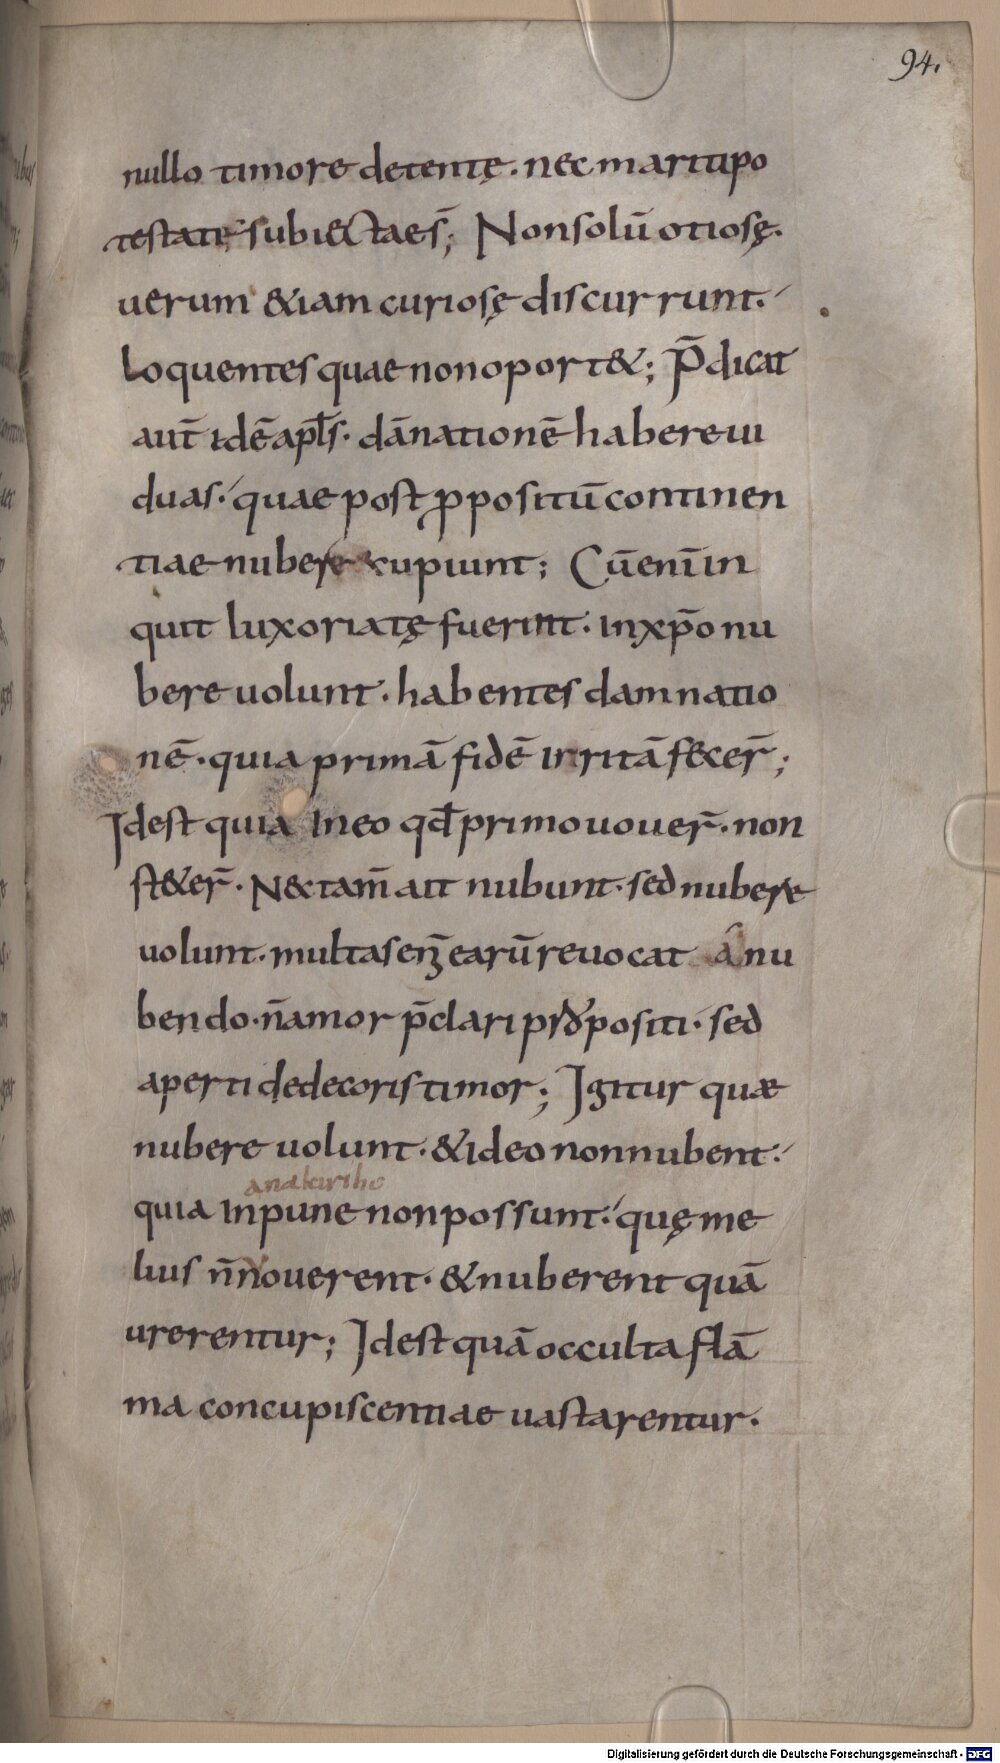 94.
nullo timore detentę. nec maritipo
testate subiectaes̄; Nonsolū otiosę.
uerum &iam curiosę discurrunt.
loquentes quae nonoport&; P̄dicat
aut̄ idē apl̄s. dānationē habereui
duas. quae post ꝓpositū continen
tiae nubere cupiunt; Cūenī in
quit luxoriatę fuerint. inxp̄o nu
bere uolunt. habentes damnatio
nē. quia primā fidē irritā fecer̄;
Idest quia ineo qd̄ primououer̄. non
st&er̄. Nectam̄ ait nubunt. sed nubere
uolunt. multas enī earū reuocat a nu
bendo. n̄amor p̄clari propositi. sed
aperti dedecoris timor; Igitur quae
nubere uolunt. &ideo nonnubent.
quia inpune nonpossunt. quęme
lius n̄uouerent. &nuberent quā
urerentur; Idest quā occulta flā
ma concupiscentiae uastarentur.
Digitalisierung gefördert durch die Deutsche Forschungsgemeinschaft - DFG